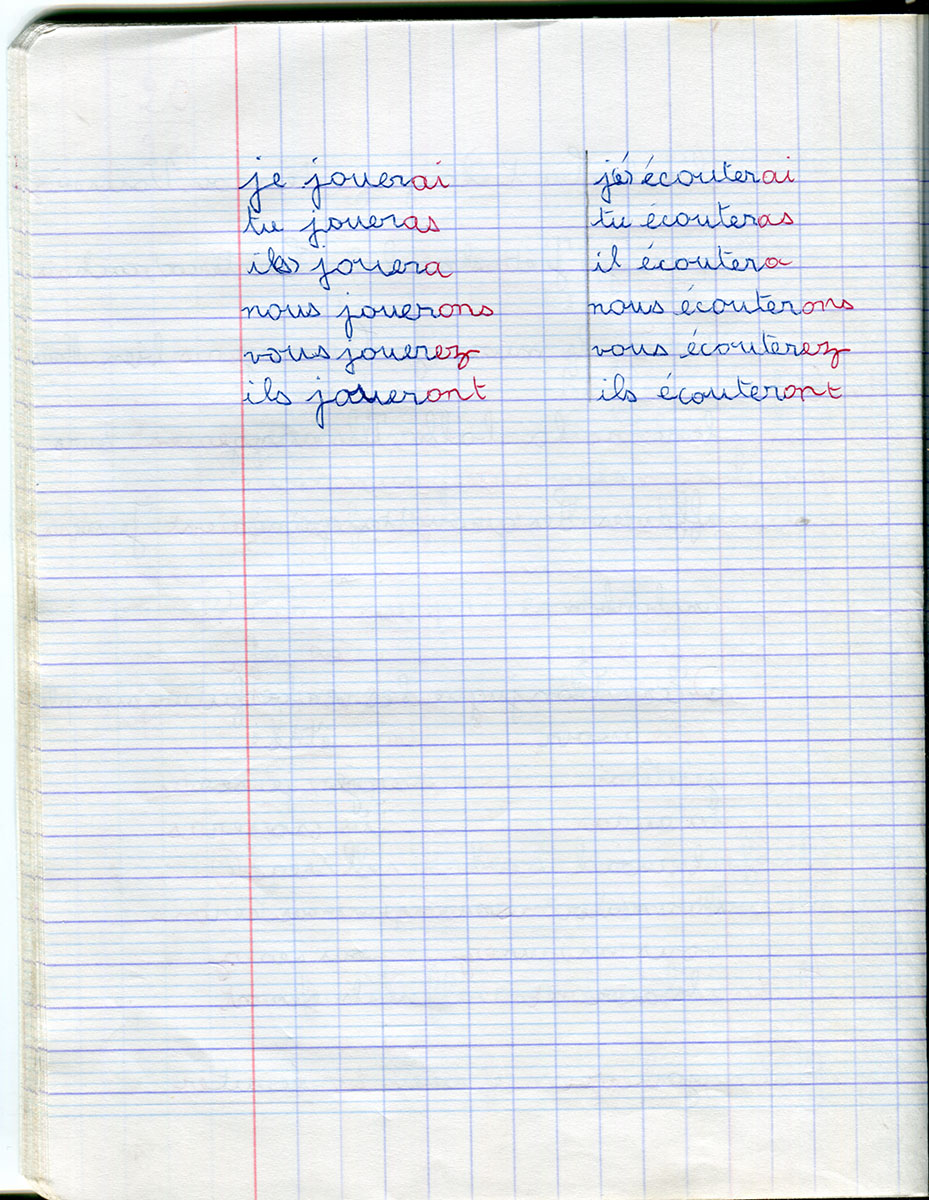 je jouerai j'écouterai
tu joueras tu écouteras
il jouera il écoutera
nous jouerons nous écouterons
vous jouerez vous écouterez
ils joueront ils écouteront